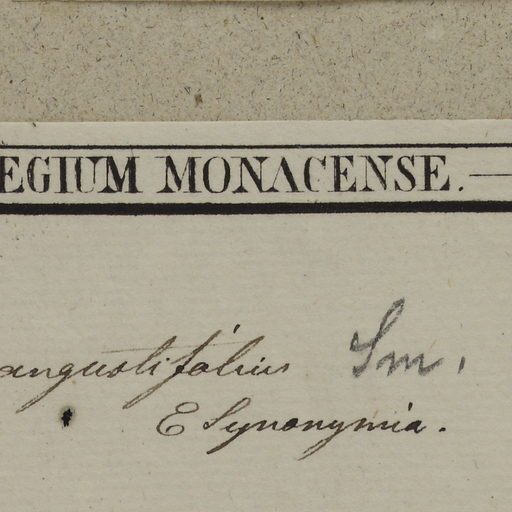 EGIUM MONACENSE.—
angustifolius Sm.
E Synonymia.